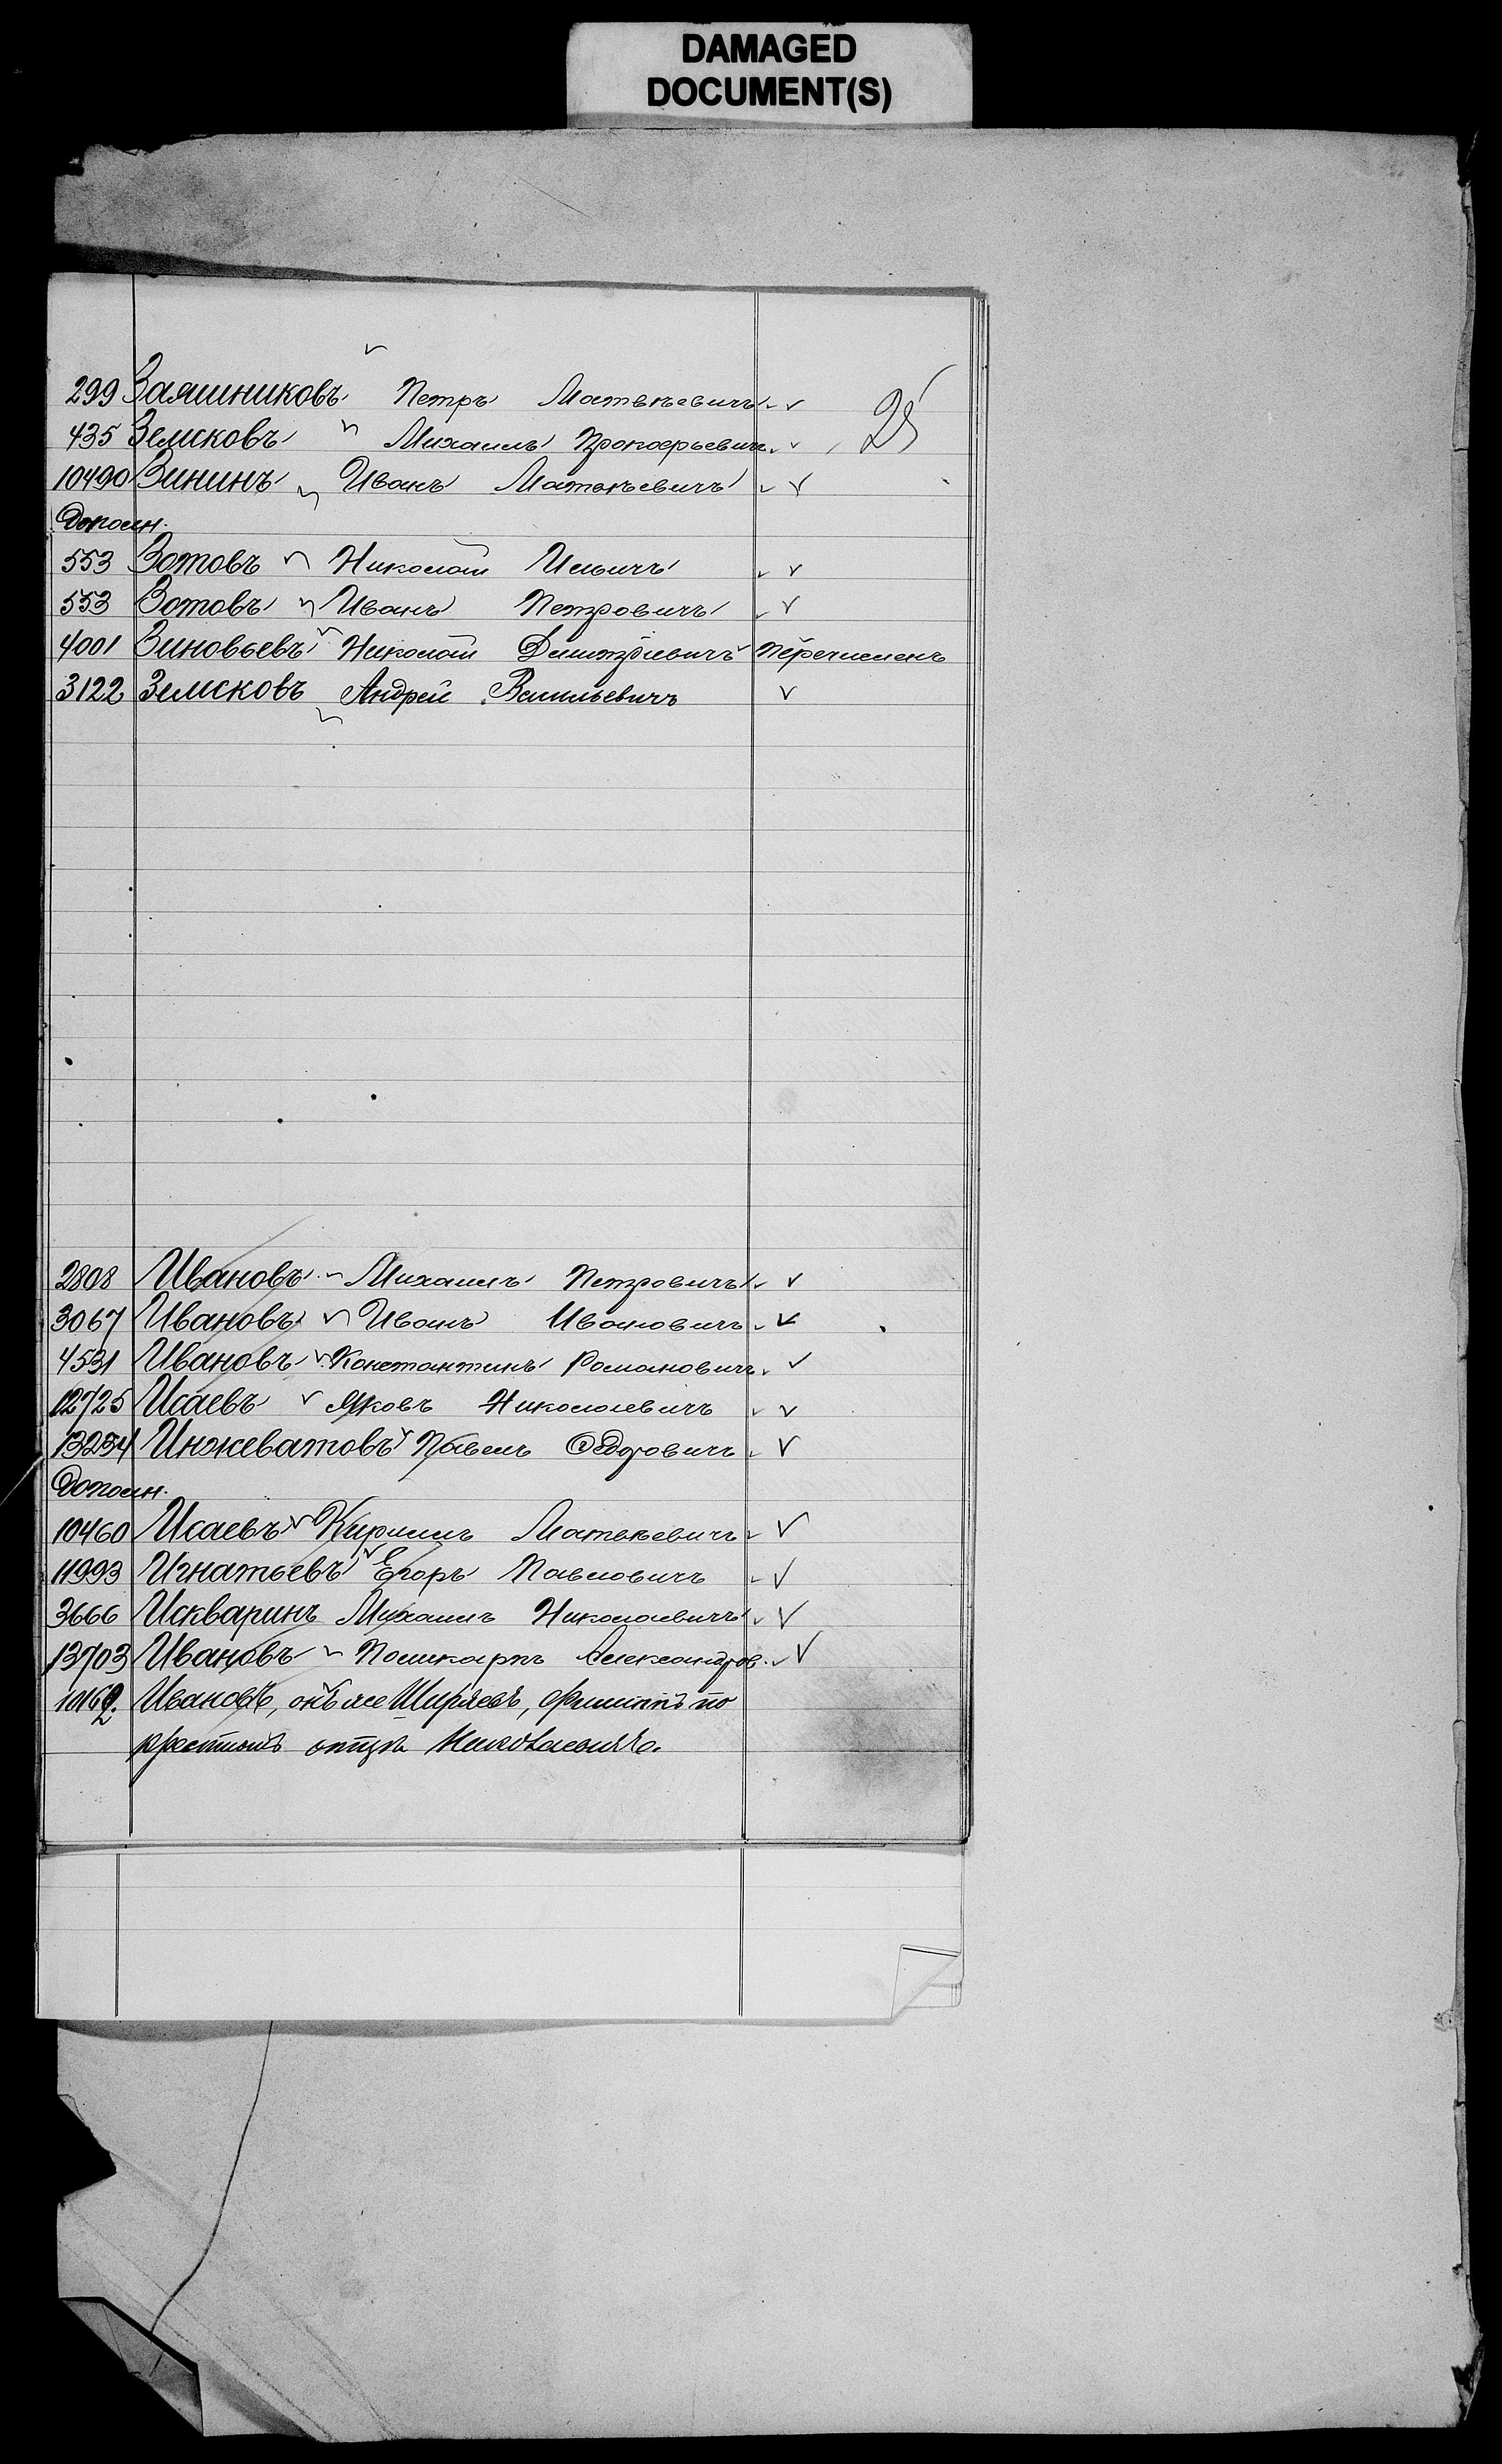 DAMAGED
DOCUMENT(S)
299 Заяшниковъ Петръ Матвѣевичъ 25
435 Земсковъ Михаилъ Прокофьевич.
10490 Зининъ Иванъ Матвѣевичъ
Дополн.
553 Зотовъ Николай Ильичъ
553 Зотовъ Иванъ Петровичъ
4001 Зиновьевъ Николай Димитріевичъ перечисленъ
3122 Земсковъ Андрей Васильевичъ
2808 Ивановъ Михаилъ Петровичъ
3067 Ивановъ Иванъ Ивановичъ
4531 Ивановъ Константинъ Романовичъ
12725 Исаевъ Яковъ Николаевичъ
13254 Инжеватовъ Павелъ Ѳедоровичъ
Дополн.
10460 Исаевъ Кириллъ Матвѣевичъ
11993 Игнатьевъ Егоръ Павловичъ
3666 Искваринъ Михаилъ Николаевичъ
13703 Ивановъ Поликарпъ Александров.
10162. Ивановъ, онъ же Ширяевъ, Филиппъ по
крестномъ отцѣ Николаевичъ.